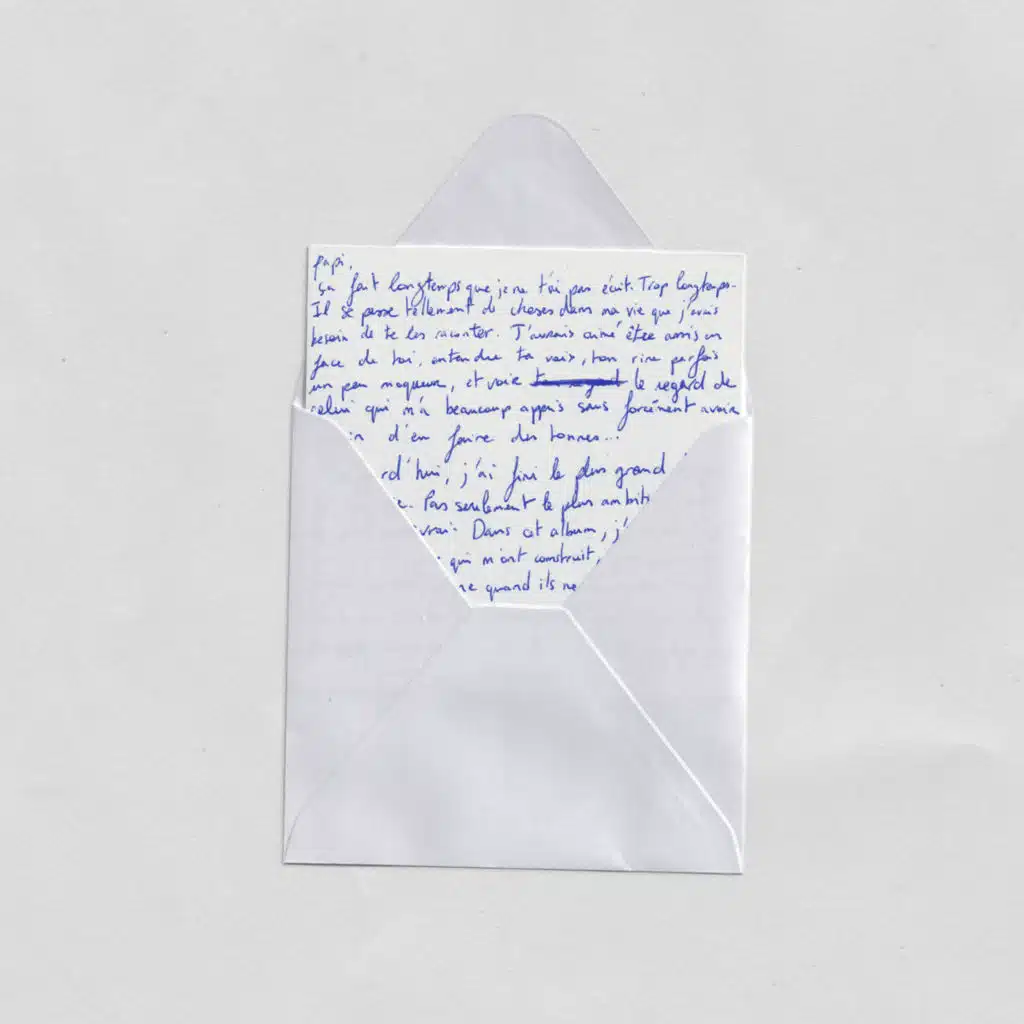 Papi,
ça fait longtemps que je ne t'ai pas écrit. Trop longtemps.
Il se passe tellement de choses dans ma vie que j'avais
besoin de te les raconter. J'aurais aimé être assis en
face de toi, entendre ta voix, ton rire parfois
un peu moqueur, et voir le regard de
celui qui m'a beaucoup appris sans forcément avoir
d'en faire des tonnes...
rd'hui, j'ai fini le plus grand
e. Pas seulement le plus ambiti
vrai. Dans cet album, j'
qui m'ont construit,
me quand ils ne